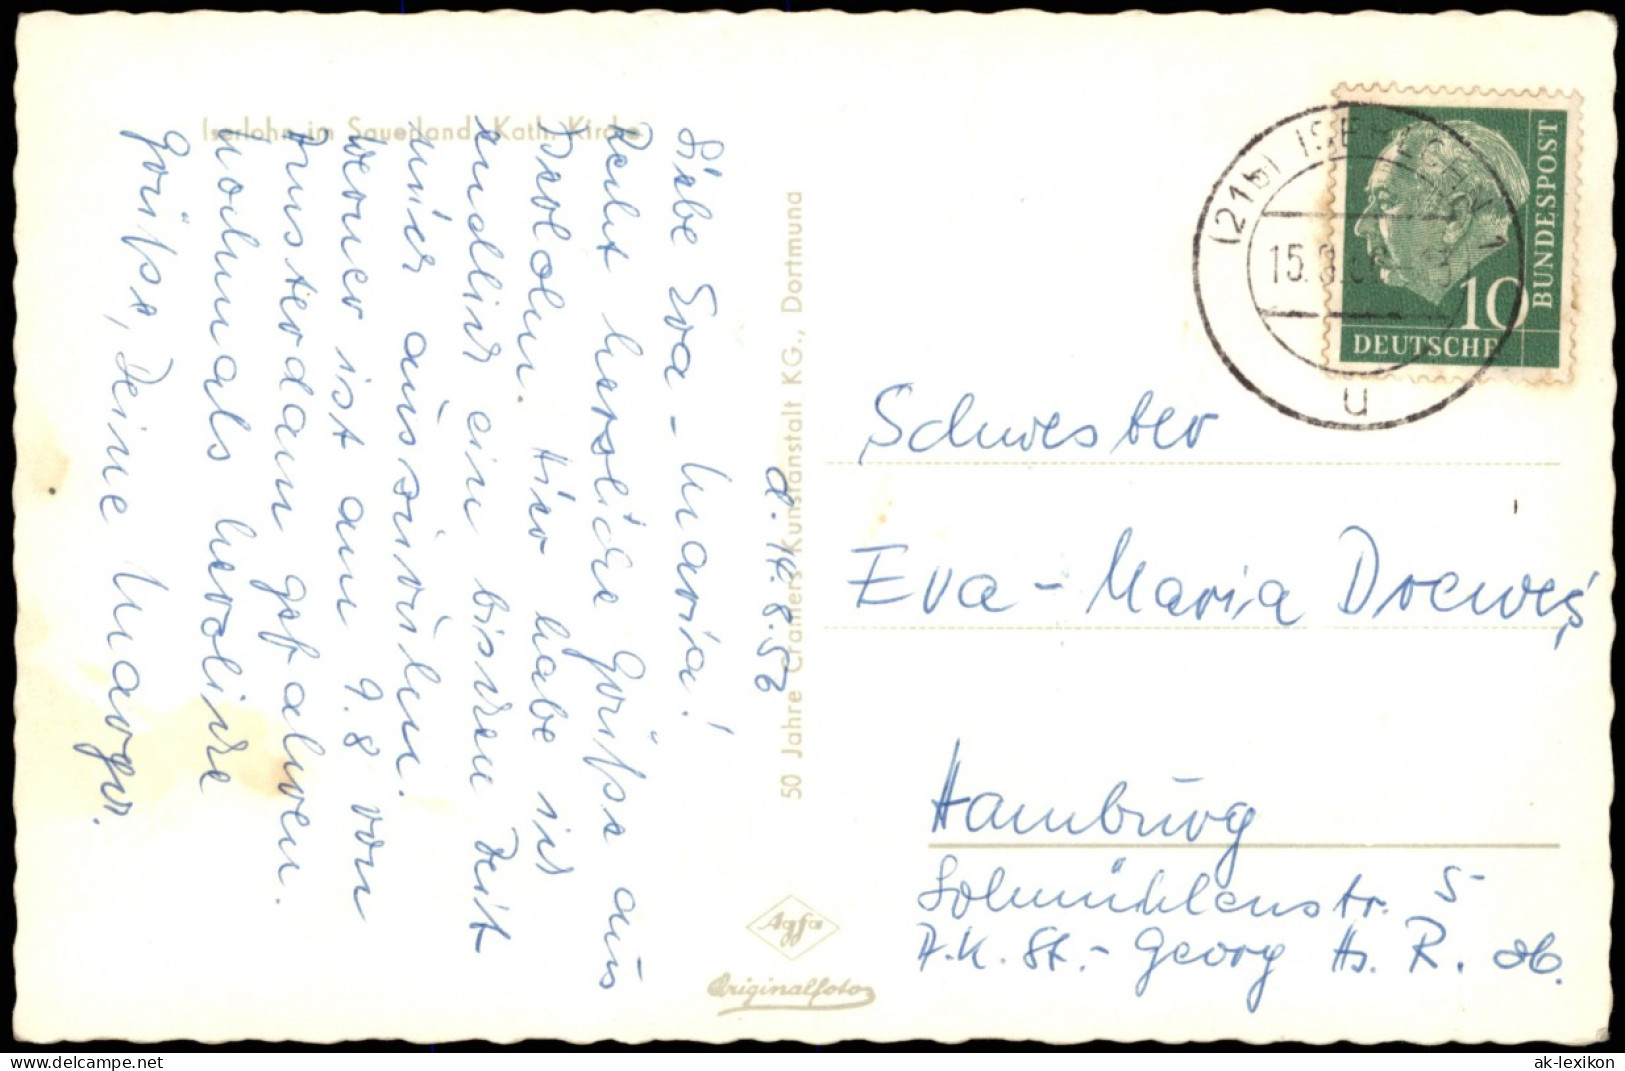 Iserlohn im Sauerland, Kath. Kirche
d. 14.8.58
Liebe Eva-Maria!
Recht herzliche Grüße aus
Iserlohn. Hier habe ich
endlich ein bischen Zeit
mich auszuruhen.
Werner ist am 9.8 von
Amsterdam gefahren.
Nochmals herzliche
Grüße, Deine Margr.
50 Jahre Cramers Kunstanstalt KG., Dortmund
Agfa
Originalfoto
(21b) ISERLOHN 1
15.8.58-13
u
DEUTSCHE
BUNDESPOST
10
Schwester
Eva-Maria Drewes
Hamburg
Lohmühlenstr. 5
A.K. St.-Georg Hs. R.
ak-lexikon
delcampe.net